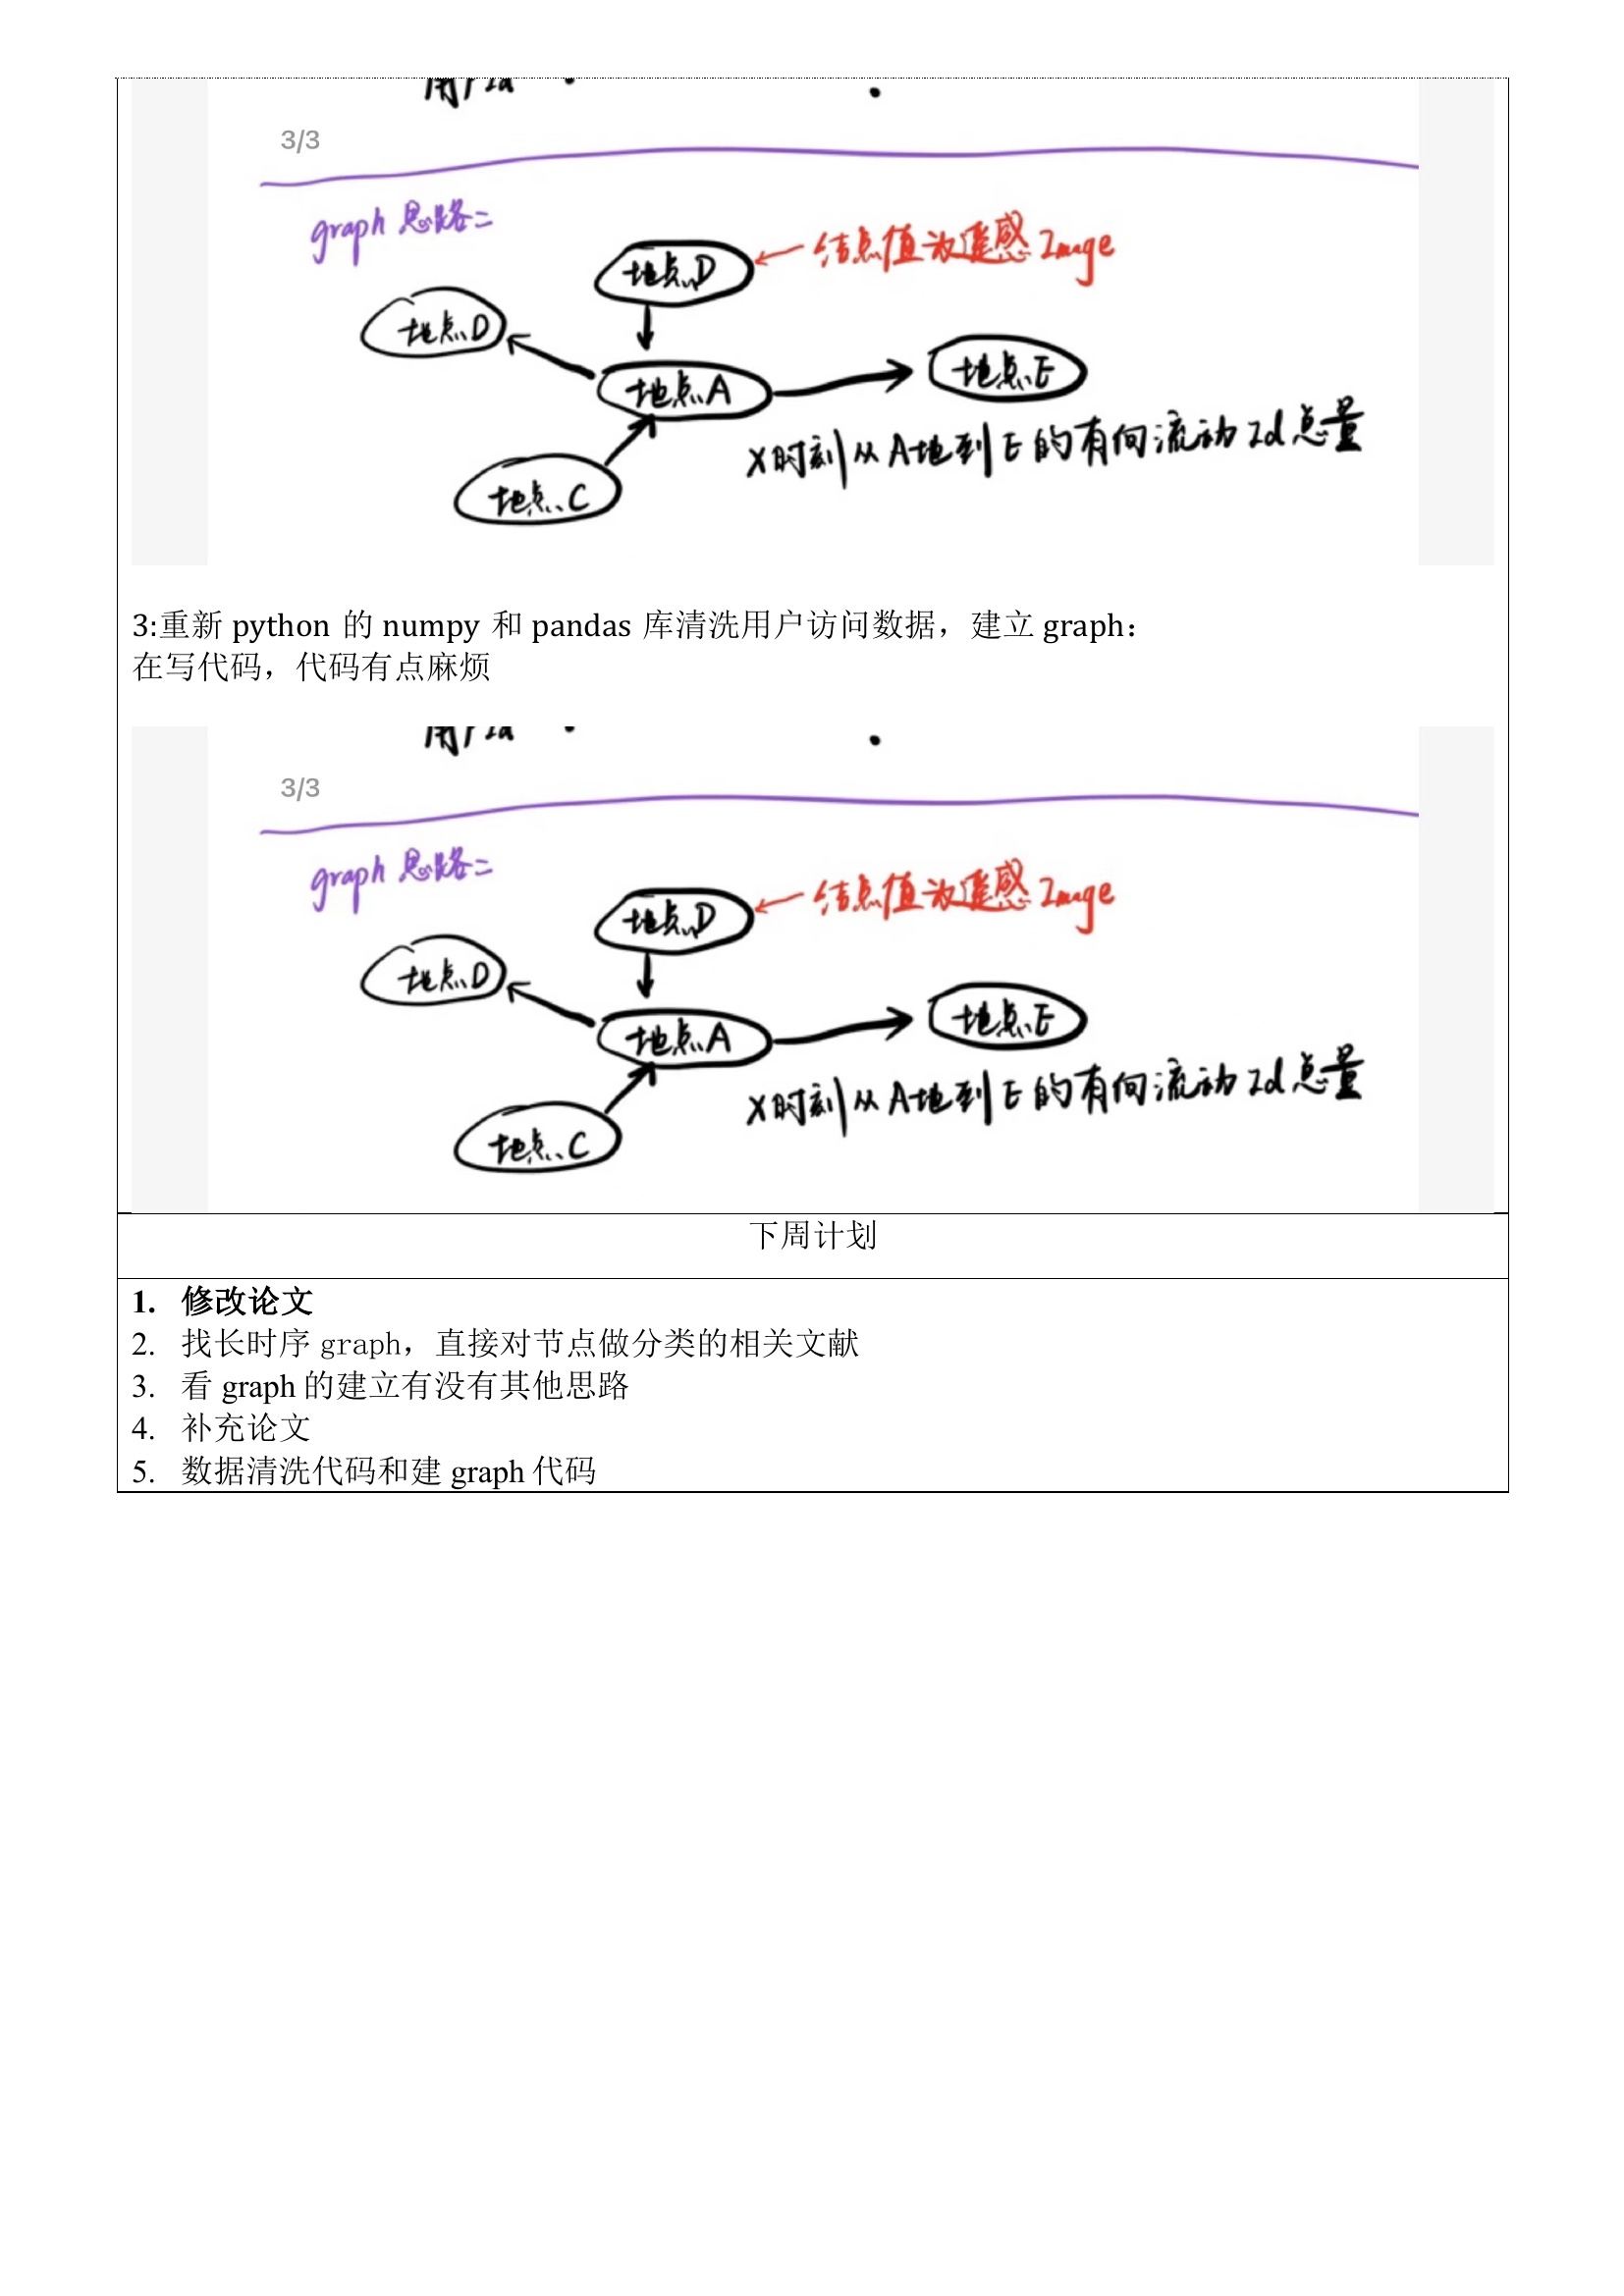 3/3
graph 思路二
地点D
← 结点值为遥感Image
地点D
地点E
地点A
X时刻从A地到E的有向流动Id总量
地点C
3:重新 python 的 numpy 和 pandas 库清洗用户访问数据，建立 graph：
在写代码，代码有点麻烦
3/3
graph 思路二
地点D
← 结点值为遥感Image
地点D
地点E
地点A
X时刻从A地到E的有向流动Id总量
地点C
下周计划
1. 修改论文
2. 找长时序 graph，直接对节点做分类的相关文献
3. 看 graph 的建立有没有其他思路
4. 补充论文
5. 数据清洗代码和建 graph 代码